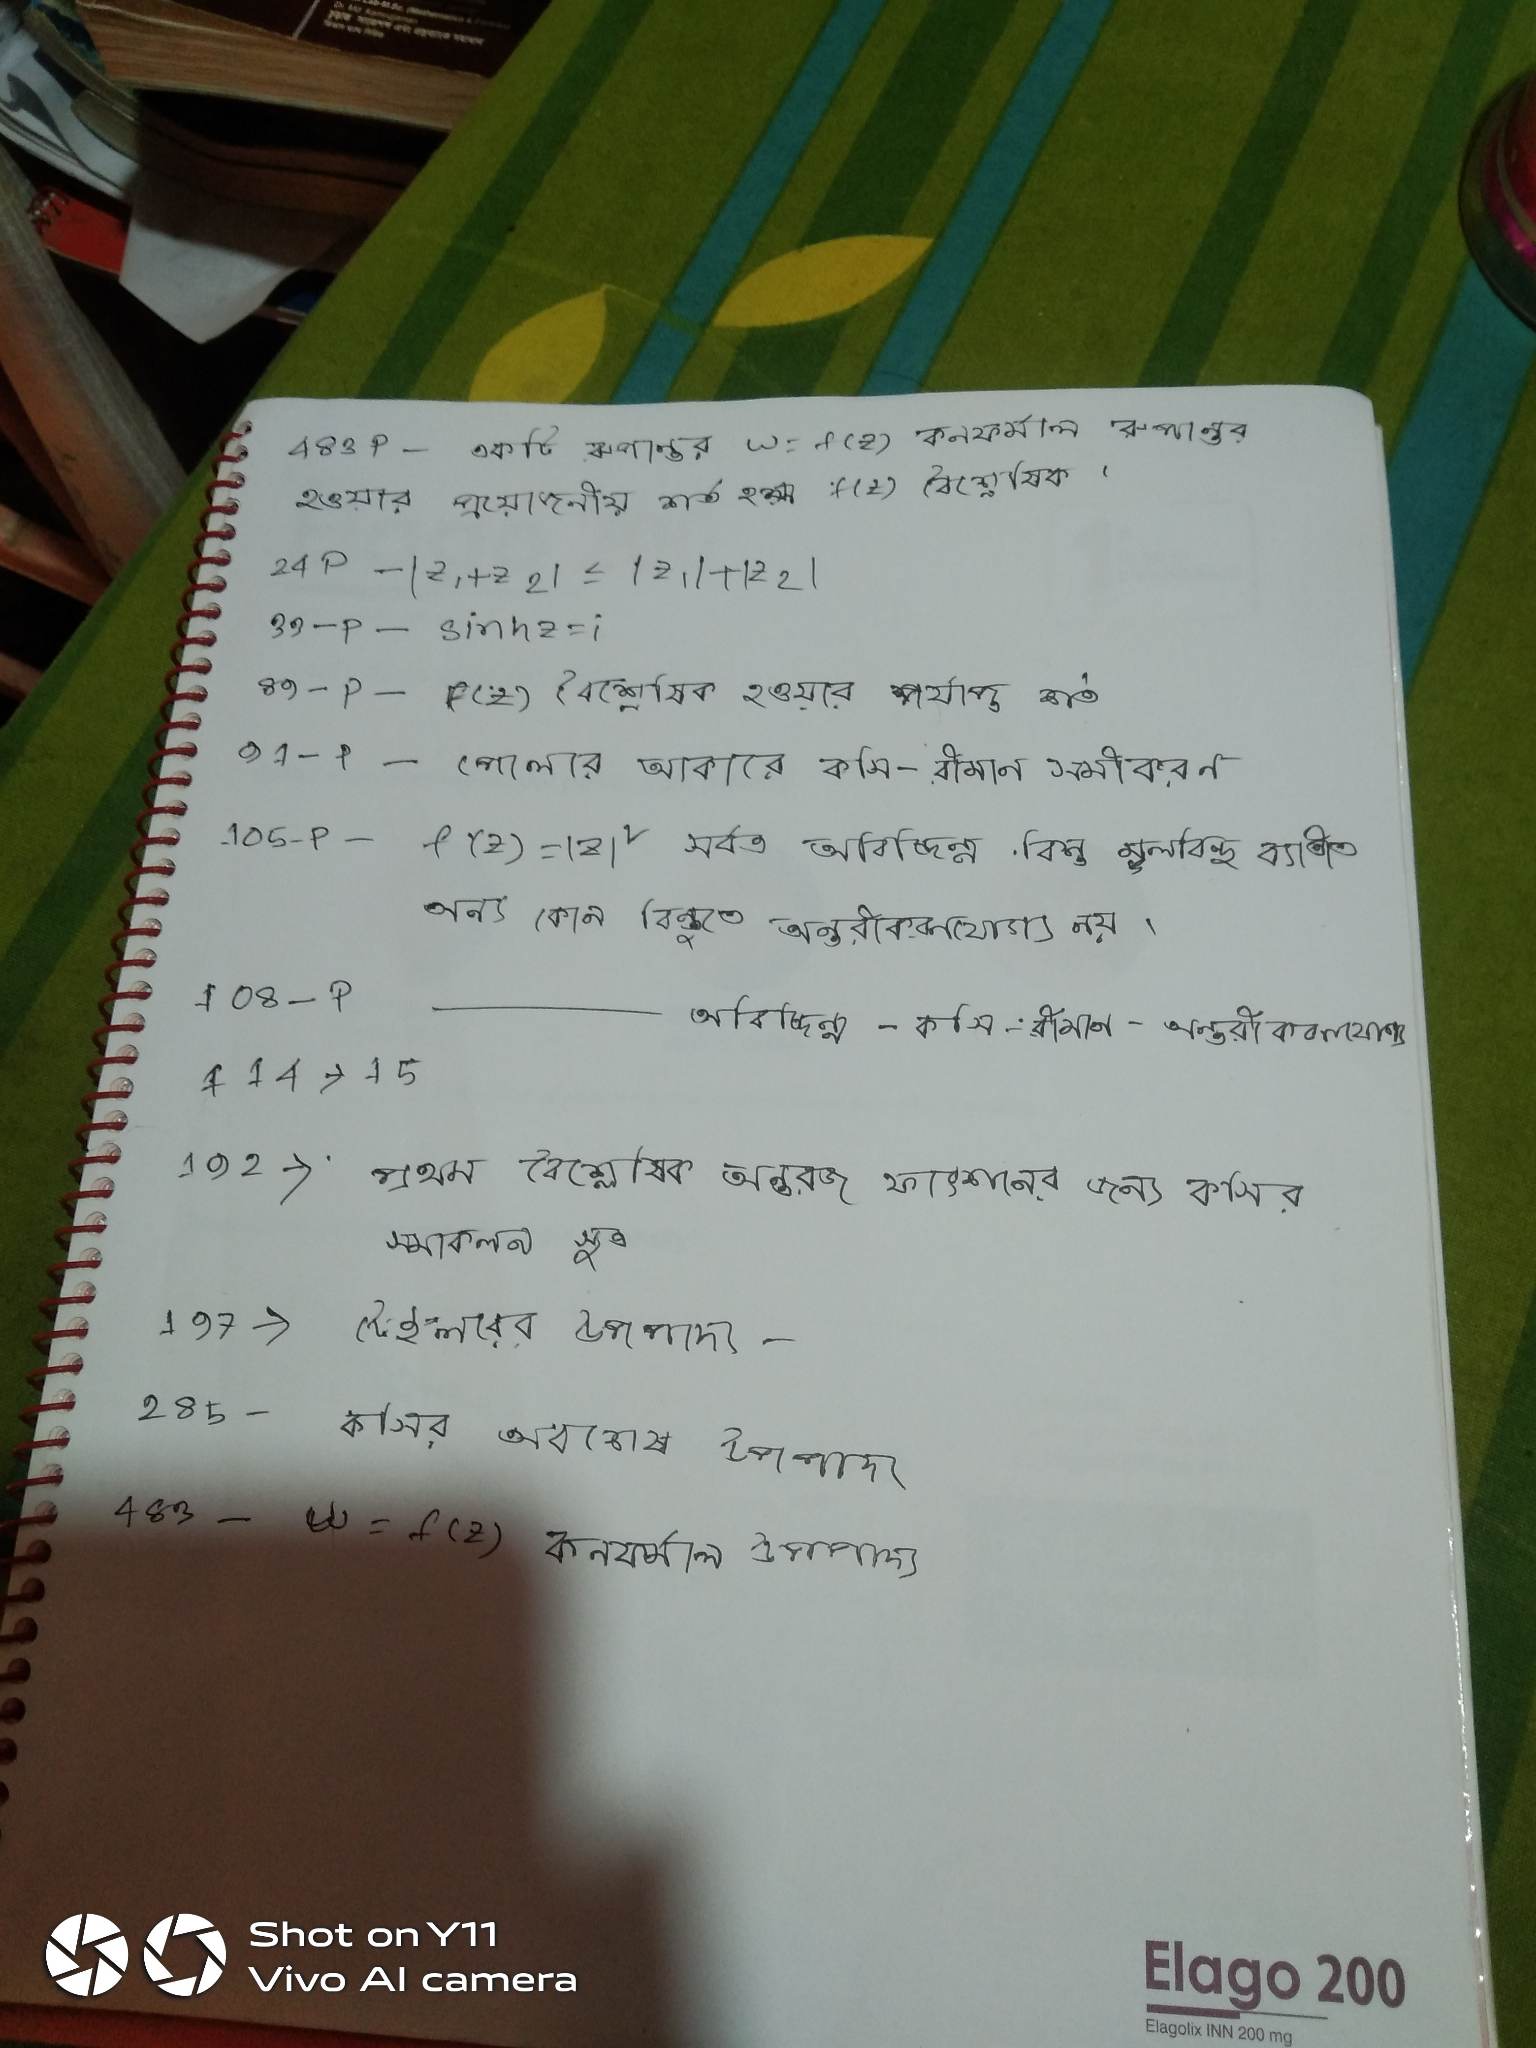 483 P - একটি রুপান্তর w = f(z) কনফর্মাল রুপান্তর
হওয়ার প্রয়োজনীয় শর্ত হল f(z) বৈশ্লেষিক ।
24 P - |z₁+z₂| ≤ |z₁|+|z₂|
39-P - sinhz=i
89-P - f(z) বৈশ্লেষিক হওয়ার পর্যাপ্ত শর্ত
91-P - পোলার আকারে কসি-রীমান সমীকরণ
105-P - f(z) = |z|² সর্বত্র অবিচ্ছিন্ন কিন্তু মূলবিন্দু ব্যতীত
অন্য কোন বিন্দুতে অন্তরীকরণযোগ্য নয় ।
108-P — অবিচ্ছিন্ন - কসি-রীমান - অন্তরীকরণযোগ্য
114 → 15
192 → প্রথম বৈশ্লেষিক অন্তরজ ফাংশনের জন্য কসির
সমাকলন সূত্র
197 → টেইলরের উপপাদ্য -
285 - কসির অবশেষ উপপাদ্য
483 - w = f(z) কনফর্মাল উপপাদ্য
Shot on Y11
Vivo AI camera
Elago 200
Elagolix INN 200 mg